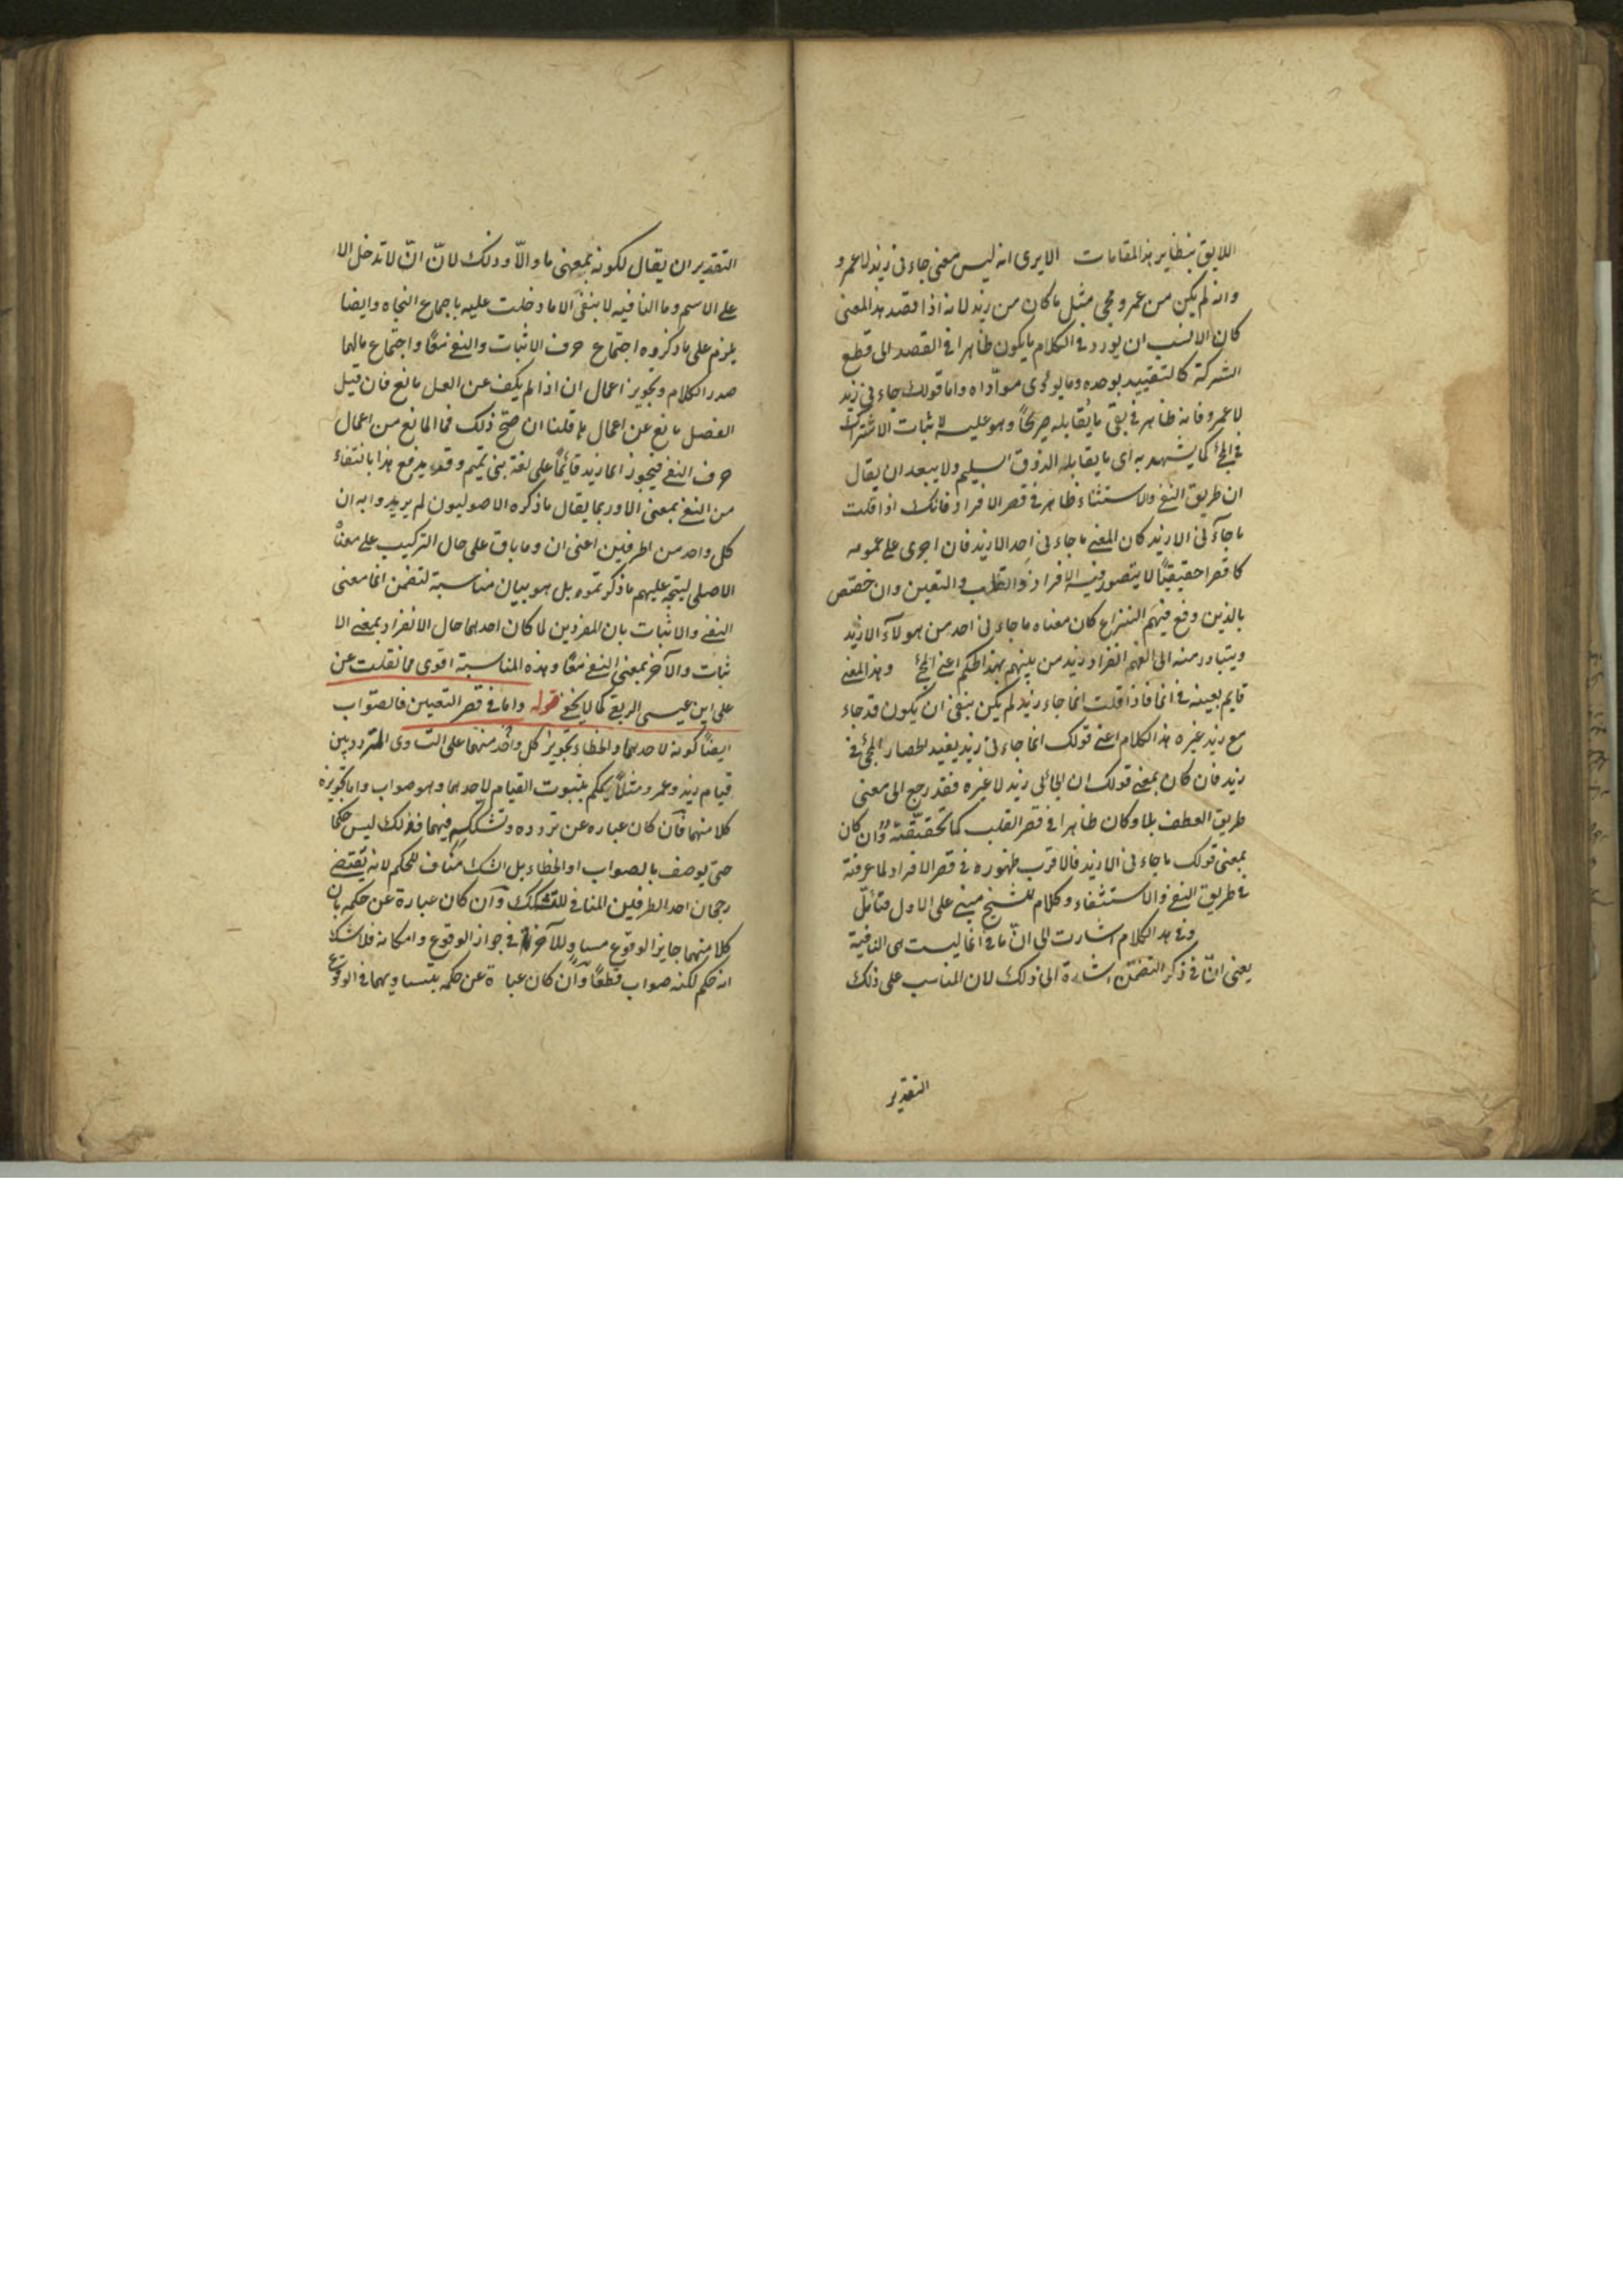 اللايق بنظاير هذا المقامات الا يرى انه ليس معنى جاءنى زيد لا عمرو
وانه لم يكن من عمرو مجى مثل ما كان من زيد لانه اذا قصد هذا المعنى
كان الانسب ان يورد فى الكلام ما يكون ظاهرا فى القصد الى قطع
الشركة كالتقييد بوحده وما يؤدى مؤداه واما قولك جاءنى زيد
لا عمرو فانه ظاهر فى نفى ما يقابله صريحًا وهو عليه لا ثبات الاشتراك
فى المجئ كما يشهد به اى ما يقابله الذوق السليم ولا يبعد ان يقال
ان طريق النفى والاستثناء ظاهر فى قصر الافراد فانك اذا قلت
ما جآءنى الا زيد كان المعنى ما جاءنى احد الا زيد فان اجرى على عمومه
كا قصرا حقيقيًا لا يتصور فيه الافراد والقلب والتعين وان خصّص
بالذين وقع فيهم النزاع كان معناه ما جاءنى احد من هولآء الا زيد
ويتبادر منه الى الفهم انفراد زيد من بينهم بهذا الحكم اعنى المجئ وهذا المعنى
قايم بعينه فى انما فاذا قلت انما جاء زيد لم يكن ينفى ان يكون قد جاء
مع زيد غيره هذا الكلام اعنى قولك انما جاءنى زيد يفيد انحصار المجئ فى
زيد فان كان بمعنى قولك ان الجائى زيد لا غيره فقد رجع الى معنى
طريق العطف بلا وكان ظاهرا فى قصر القلب كما تحققته وان كان
بمعنى قولك ما جاءنى الا زيد فالاقرب ظهوره فى قصر الافراد لما عرفته
فى طريق النفى والاستثناء وكلام الشيخ مبنى على الاول فتأمّل
وفى هذا الكلام اشارت الى انّ ما فى انما ليست هى النافية
يعنى انّ فى ذكر التضمّن اشارة الى ذلك لان المناسب على ذلك
التقدير
التقدير ان يقال لكونه بمعنى ما والّا وذلك لانّ انّ لا تدخل الا
على الاسم وما النافيه لا ينفى الا ما دخلت عليه باجماع النحاه وايضا
يلزم على ما ذكروه اجتماع حرف الاثبات والنفى معًا واجتماع مالهما
صدر الكلام وتجويز اعمال ان اذا لم يكف عن العمل مانع فان قيل
الفصل مانع عن اعمال ما قلنا ان صحّ ذلك فما المانع من اعمال
حرف النفى فيجوز انما زيد قائمًا على لغة بنى تميم وقد يدفع هذا بانتفاء
من النفى بمعنى الا وربما يقال ما ذكره الاصوليون لم يريدوا به ان
كل واحد من الطرفين اعنى ان وما باق على حال التركيب على معناه
الاصلى ليتجه عليهم ما ذكرتموه بل هو بيان مناسبة لتضمن انما معنى
النفى والاثبات بان المفردين لما كان احدهما حال الانفراد بمعنى الا
ثبات والآخر بمعنى النفى معًا وهذه المناسبة اقوى مما نقلت عن
على ابن عيسى الربعى كما لا يخفى قوله واما فى قصر التعيين فالصوّاب
ايضًا كونه لاحدهما والخطاء تجويز كل واحد منهما على التساوى المتردد بين
قيام زيد وعمرو مثلاً يحكم بثبوت القيام لاحدهما وهو صواب واما تجويزه
كلا منهما فان كان عباره عن تردده وتشككه فيهما فذلك ليس حكمًا
حتى يوصف بالصواب او الخطاء بل الشك مناف للحكم لانه يقتضى
رجحان احد الطرفين المنافى للتشكك وان كان عبارة عن حكمه بان
كلا منهما جايز الوقوع مساو للآخر فى جواز الوقوع وامكانه فلا شك
انه حكم لكنه صواب قطعًا وان كان عبارة عن حكمه بتساويهما فى الوقوع